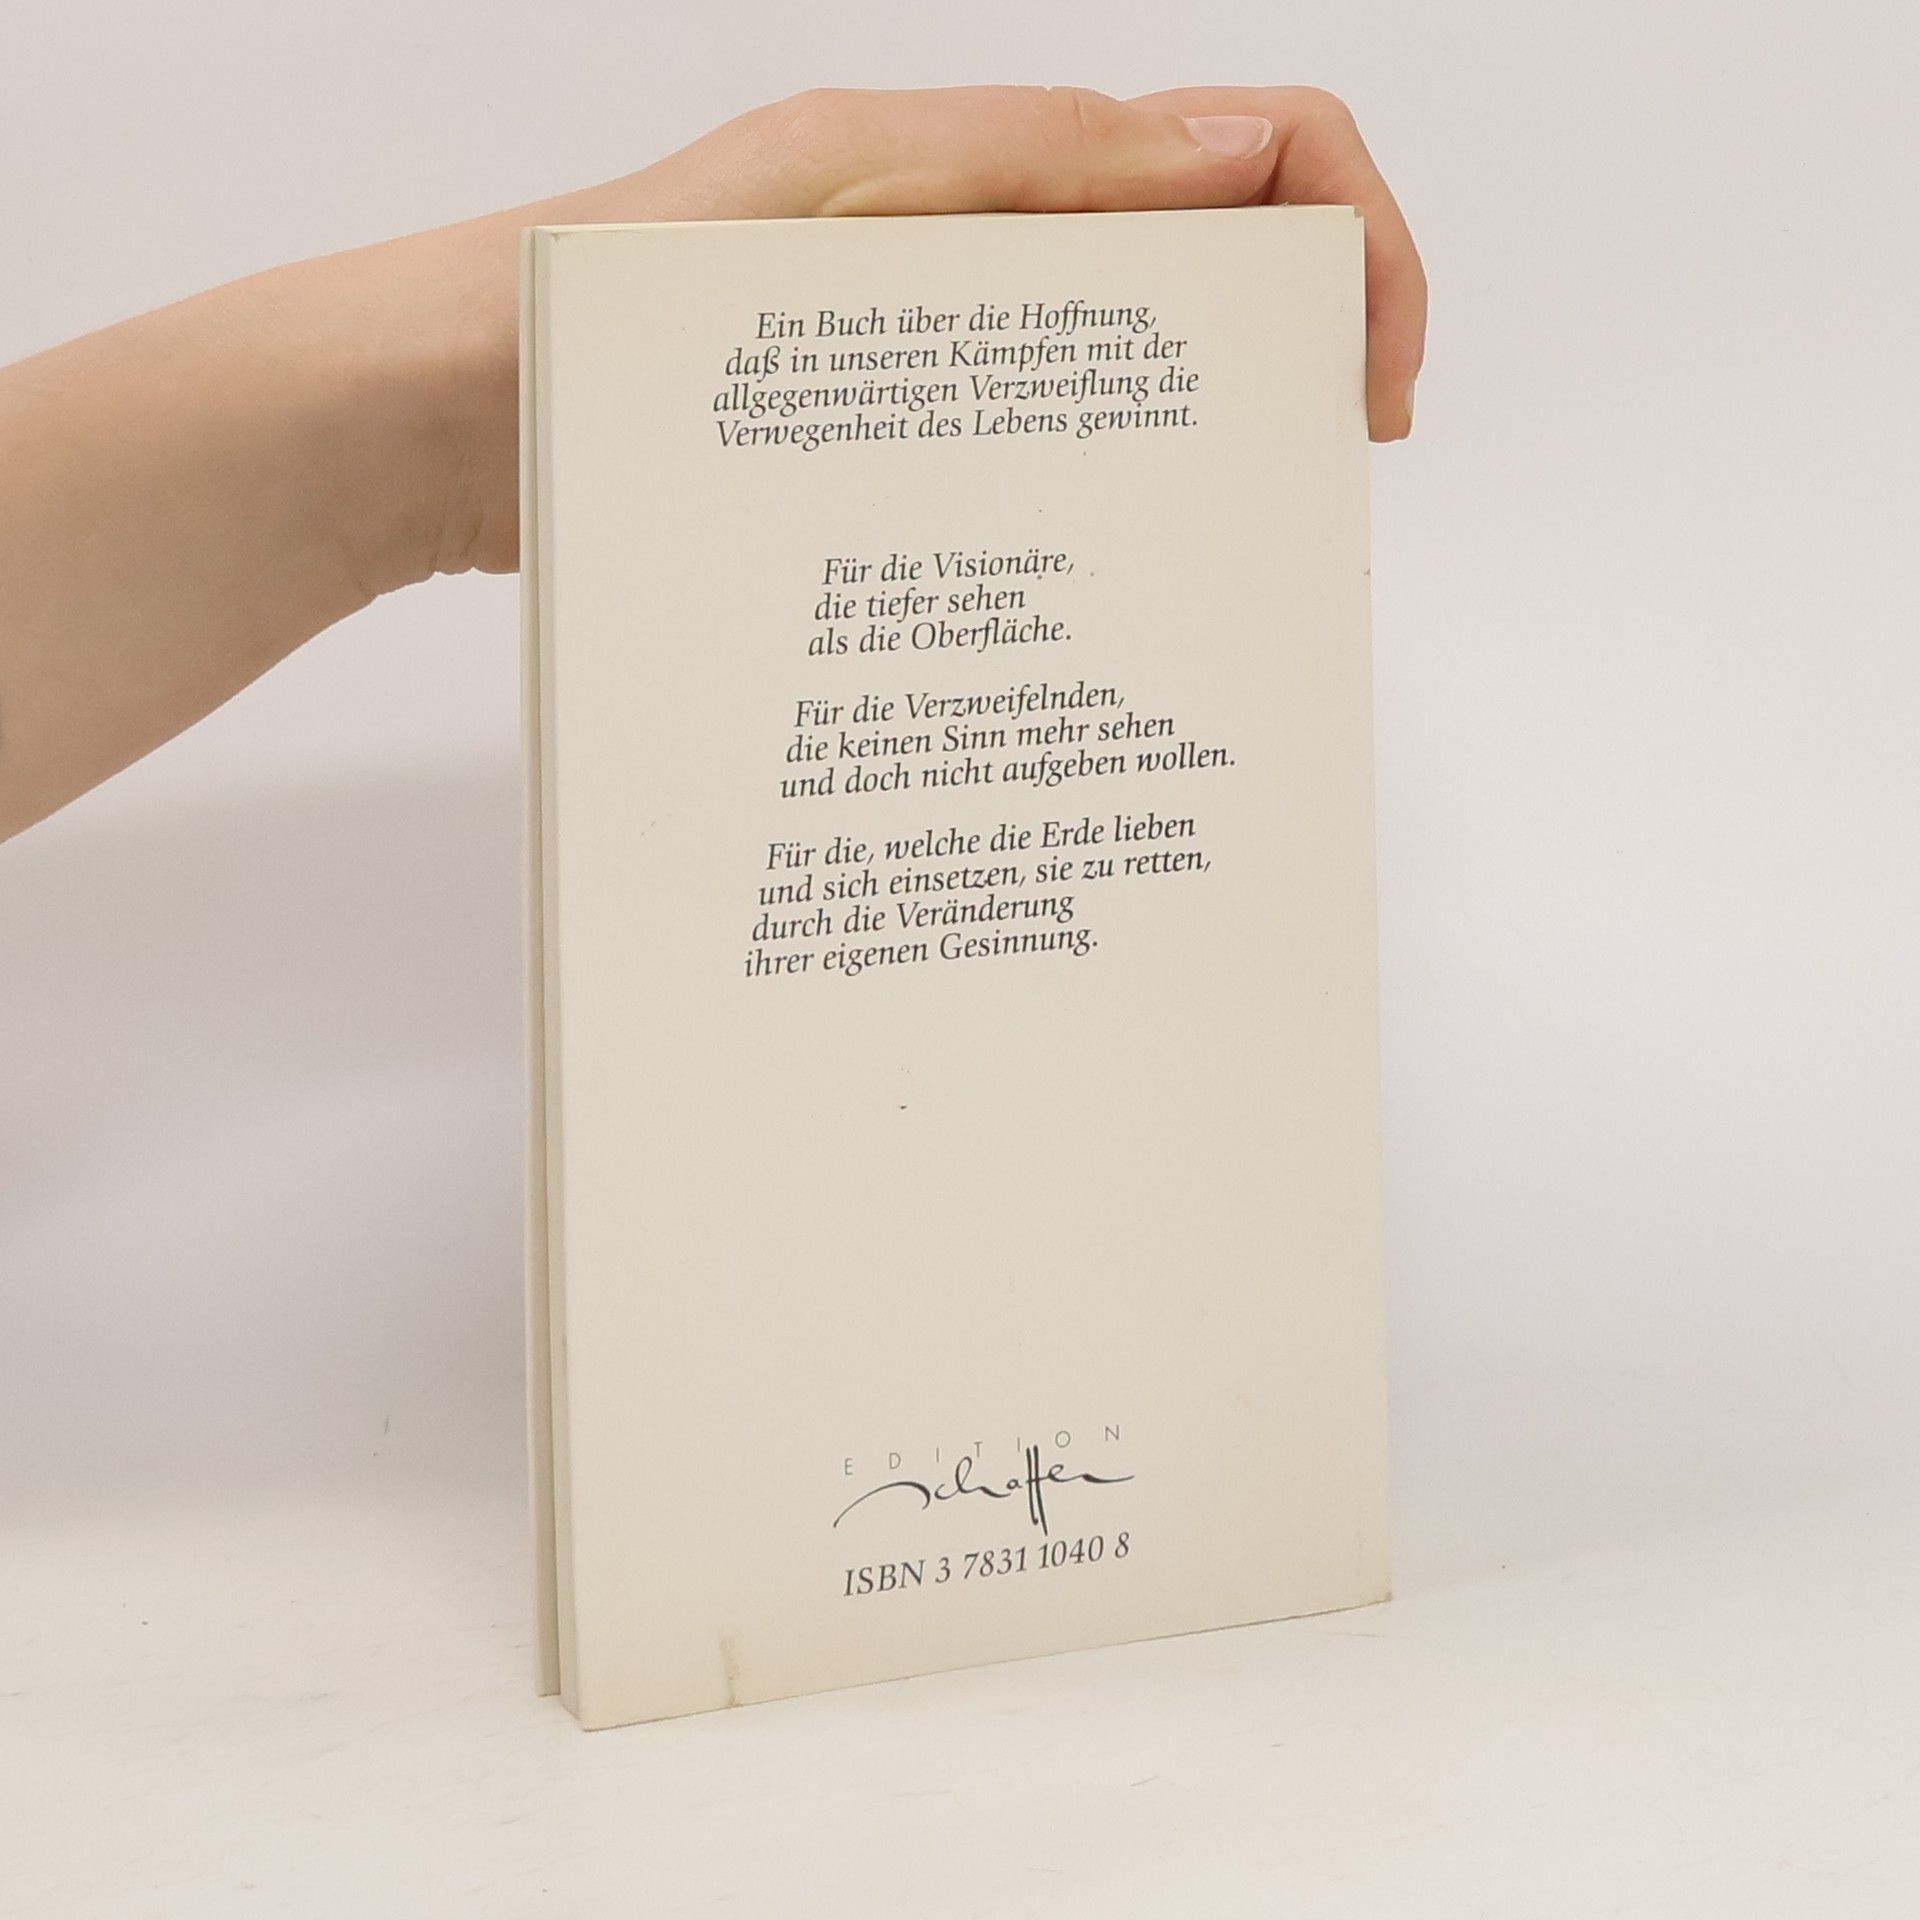 Ein Buch über die Hoffnung,
daß in unseren Kämpfen mit der
allgegenwärtigen Verzweiflung die
Verwegenheit des Lebens gewinnt.
Für die Visionäre,
die tiefer sehen
als die Oberfläche.
Für die Verzweifelnden,
die keinen Sinn mehr sehen
und doch nicht aufgeben wollen.
Für die, welche die Erde lieben
und sich einsetzen, sie zu retten,
durch die Veränderung
ihrer eigenen Gesinnung.
EDITION
Schaffer
ISBN 3 7831 1040 8